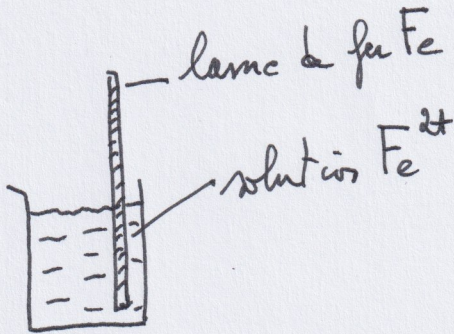 lame de fer Fe
solution Fe²⁺